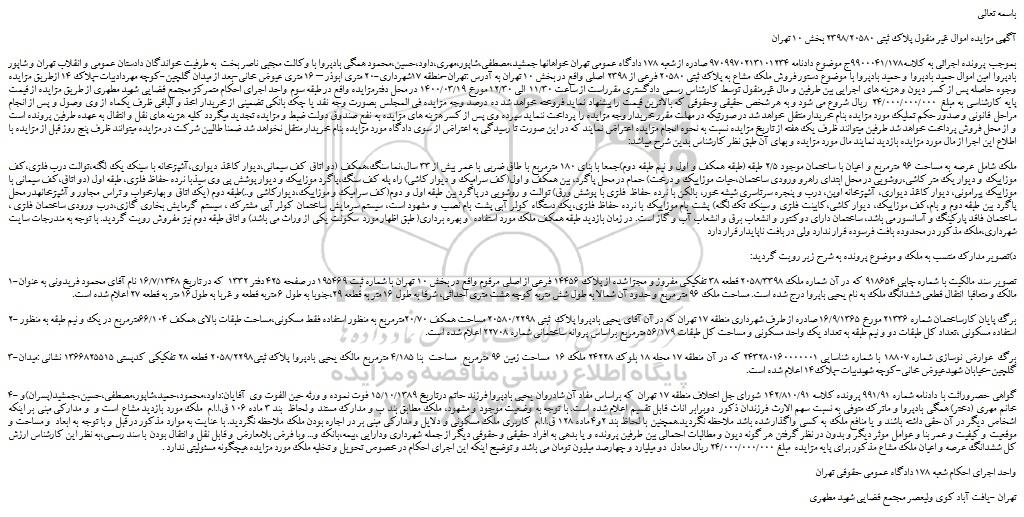 باسمه تعالی
آگهی مزایده اموال غیر منقول پلاک ثبتی ۲۳۹۸/۲۰۵۸۰ بخش ۱۰ تهران
بموجب پرونده اجرائی به کلاسه ۹۹۰۰۰۴۱/۱۷۸ج موضوع دادنامه ۹۷۰۹۹۷۰۲۱۳۱۰۱۲۳۴ صادره از شعبه ۱۷۸ دادگاه عمومی تهران خواهانها جمشید،مصطفی،شاپور،مهری،داود،حسین،محمود همگی بادپروا با وکالت مجتبی ناصر بخت به طرفیت خواندگان دادستان عمومی و انقلاب تهران و شاپور
بادپروا امین اموال حمید بادپروا و حمید بادپروا با موضوع دستور فروش ملک مشاع به پلاک ثبتی ۲۰۵۸۰ فرعی از ۲۳۹۸ اصلی واقع در بخش ۱۰ تهران به آدرس :تهران-منطقه ۱۷شهرداری-۲۰ متری ابوذر – ۱۶ متری عیوض خانی-بعد از میدان گلچین-کوچه مهردادبیات-پلاک ۱۴ ازطریق مزایده
وجوه حاصله پس از کسر دیون و هزینه های اجرایی بین طرفین و مال غیرمنقول توسط کارشناس رسمی دادگستری مقرر است از ساعت ۱۱/۳۰ الی ۱۲/۳۰ مورخ ۱۴۰۰/۰۳/۱۹ در محل دفترمزایده واقع در طبقه سوم واحد اجرای احکام متمرکز مجتمع قضایی شهید مطهری از طریق مزایده از قیمت
پایه کارشناسی به مبلغ ۲۴/۰۰۰/۰۰۰/۰۰۰ ریال شروع می شود و به هر شخص حقیقی وحقوقی که بالاترین قیمت را پیشنهاد نماید فروخته خواهد شد ده درصد وجه مزایده فی المجلس بصورت وجه نقد یا چک بانکی تضمینی از خریدار اخذ و الباقی ظرف یکماه از وی وصول و پس از انجام
مراحل قانونی و صدور حکم تملیک مورد مزایده بنام خریدار منتقل خواهد شد در صورتیکه در مهلت مقرر خریدار وجه مزایده را پرداخت ننماید سپرده وی پس از کسر هزینه های مزایده به نفع صندوق دولت ضبط و مزایده تجدید میگردد کلیه هزینه های نقل و انتقال به عهده طرفین پرونده است
و از محل فروش پرداخت خواهد شد طرفین میتوانند ظرف یک هفته از تاریخ مزایده نسبت به نحوه انجام مزایده اعتراض نمایند که در این صورت تا رسیدگی به اعتراض از سوی دادگاه مورد مزایده بنام خریدار منتقل نخواهد شد ضمنا طالبین شرکت در مزایده میتوانند ظرف پنج روز قبل از مزایده با
اطلاع این اجرا از مال مورد مزایده بازدید نمایند مال مورد مزایده و بهای آن طبق نظر کارشناس بدین شرح میباشد:
ملک شامل عرصه به مساحت ۹۶ مترمربع و اعیان با ساختمان موجود ۲/۵ طبقه (طبقه همکف و اول و نیم طبقه دوم)جمعا با بنای ۱۸۰ مترمربع با طاق ضربی با عمر بیش از ۳۳ سال،نماسنگ،همکف (دو اتاق کف سیمانی،دیوار کاغذ دیواری،آشپزخانه با سینک یک لگنه،توالت درب فلزی،کف
موزاییک و دیوار یک متر کاشی،روشویی در محل ابتدای راهرو ورودی ساختمان،حیات موزاییک و درخت) حمام در محل پاگرد بین همکف و اول(کف سرامیک و دیوار کاشی) راه پله کف سنگ،پاگرد موزاییک و دیوارپوشش پی وی سی،با نرده حفاظ فلزی،طبقه اول (دو اتاق،کف سیمانی با
موزاییک پیرامونی، دیوار کاغذ دیواری، آشپزخانه اوپن، درب و پنجره سرتاسری شیشه خور، بالکن با نرده حفاظ فلزی با پوشش ورق) توالت و روشویی در پاگرد بین طبقه اول و دوم(کف سرامیک و موزاییک،دیوار کاشی و...)طبقه دوم (یک اتاق و بهارخواب و تراس مجاور و آشپزخانه‌در محل
پاگرد بین طبقه دوم و بام،کف موزاییک، دیوار کاشی، کابینت فلزی و سینک تک لگنه) پشت بام موزاییک با نرده حفاظ فلزی،یک دستگاه کولر آبی پشت بام نصب و مشهود است، سیستم سرمایش ساختمان کولر آبی مشترک، سیستم گرمایش بخاری گازی،درب ورودی ساختمان فلزی،
ساختمان فاقد پارکینگ و آسانسور می باشد، ساختمان دارای دو کنتور و انشعاب برق و انشعاب آب و گاز است. در زمان بازدید طبقه همکف ملک مورد استفاده و بهره برداری( طبق اظهار مورد سکونت یکی از وراث می باشد) و اتاق طبقه دوم نیز مفروش رویت گردید. با توجه به مندرجات سایت
شهرداری،ملک مذکور در محدوده بافت فرسوده قرار ندارد ولی در بافت ناپایدار قرار دارد
د)تصویر مدارک منتسب به ملک و موضوع پرونده به شرح زیر رویت گردید:
تصویر سند مالکیت با شماره چاپی ۹۱۸۶۵۴ که در آن شماره ملک ۲۰۵۸/۳۳۹۸ قطعه ۳۸ تفکیکی مفروز و مجزا شده از پلاک ۱۴۴۵۶ فرعی از اصلی مرقوم واقع در بخش ۱۰ تهران با شماره ثبت ۱۹۵۴۶۹ در صفحه ۴۲۵دفتر ۱۳۳۲ که در تاریخ ۱۶/۷/۱۳۴۸ نام آقای محمود فریدونی به عنوان-۱
مالک و متعاقبا انتقال قطعی ششدانگ ملک به نام یحیی باپروا درج شده است. مساحت ملک ۹۶ متر مربع و حدود آن شمالا به طول شش متربه کوچه هشت متری احداثی، شرقا به طول ۱۶ متر به قطعه ۲۹،جنوبا به طول ۶متربه قطعه و غربا به طول ۱۶ متر به قطعه ۲۷ اعلام شده است.
برگ پایان کارساختمان شماره ۲۱۳۳۶ مورخ ۱۶/۹/۱۳۶۵ صادره از طرف شهرداری منطقه ۱۷ تهران که در آن آقای یحیی بادپروا پلاک ثبتی ۲۰۵۸۰/۲۲۹۸ مساحت همکف ۲۰/۷۰مترمربع به منظور استفاده فقط مسکونی،مساحت طبقات بالای همکف ۶۶/۱۰۴مترمربع در یک و نیم طبقه به منظور -۲
استفاده مسکونی ،تعداد کل طبقات دو و نیم طبقه به تعداد یک واحد مسکونی و مساحت کل طبقات ۵۶/۱۷۹ مترمربع براساس پروانه ساختمانی شماره ۲۲۷۰۸ اعلام شده است.
برگ عوارض نوسازی شماره ۱۸۸۰۷ با شماره شناسایی ۲۴۳۲۸۰۱۶۰۰۰۰۰۰۱ که در آن منطقه ۱۷ محله ۱۸ بلوک ۲۴۲۲۸ ملک ۱۶ مساحت زمین ۹۶ مترمربع مساحت بنا ۴/۱۸۵ مترمربع مالک یحیی بادپروا پلاک ثبتی۲۰۵۸/۲۲۹۸ قطعه ۲۸ تفکیکی کدپستی ۱۳۶۶۸۲۵۵۱۵ نشانی :میدان-۳
گلچین-خیابان شهیدعیوض خانی-کوچه شهیدبیات-پلاک۱۴ اعلام شده است.
گواهی حصروراثت با دادنامه شماره ۹۹۱/۹۱ پرونده کلاسه ۱۴۲/۸۱۰/۹۱ شورای حل اختلاف منطقه ۱۷ تهران که براساس مفاد آن شادروان یحیی بادپروا فرزند حاتم درتاریخ ۱۵/۱۰/۱۳۸۹ فوت نموده و ورثه حین الفوت وی آقایان:داود،محمود،حمید،شاپور،مصطفی،حسین،جمشید(پسران)و -۴
خانم مهری (دختر) همگی بادپروا و ماترک متوفی به نسبت سهم الارث فرزندان ذکور دوبرابر اناث قابل تقسیم اعلام شده است. با توجه به وضعیت موجود و مشهود، ملک مطابق بند ب و مدارک مستند و لحاظ بند ۳ ماده ۱۰۶ ق.ا.ا.م ملک مورد بازدید مشاع است و و مدارکی مبنی بر اینکه
اشخاص دیگر در آن حقی داشته باشند و یا منافع ملک به کسی واگذار شده باشد ملاحظه نگردید.همچنین با لحاظ بند ۲و۴ ماده ۱۲۸ ق.ا.ا.م کاربری ملک مسکونی و دلایل و مدارکی مبنی بر در اجاره بودن ملک ملاحظه نگردید. با عنایت به موارد مذکور در قبل و با توجه به ابعاد و مساحت و
موقعیت و کیفیت و عمر بنا و عوامل موثر دیگر و بدون در نظر گرفتن هرگونه دیون و مطالبات احتمالی بین طرفین پرونده و یا بدهی به افراد حقیقی و حقوقی دیگر از جمله شهرداری ودارایی ،بیمه،بانک و... وبا فرض بلامعارض و قابل نقل و انتقال بودن با سند رسمی،به نظر این کارشناس ارزش
کل ششدانگ عرصه و اعیان ملک مشاع مذکور برای پایه مزایده مبلغ ۲۴/۰۰۰/۰۰۰/۰۰۰ ریال معادل دو میلیارد و چهارصد میلیون تومان می باشد و توضیح اینکه این اجرای احکام درخصوص تحویل و تخلیه ملک مورد مزایده هیچگونه مسئولیتی ندارد .
واحد اجرای احکام شعبه ۱۷۸ دادگاه عمومی حقوقی تهران
تهران -یافت آباد کوی ولیعصر مجتمع قضایی شهید مطهری